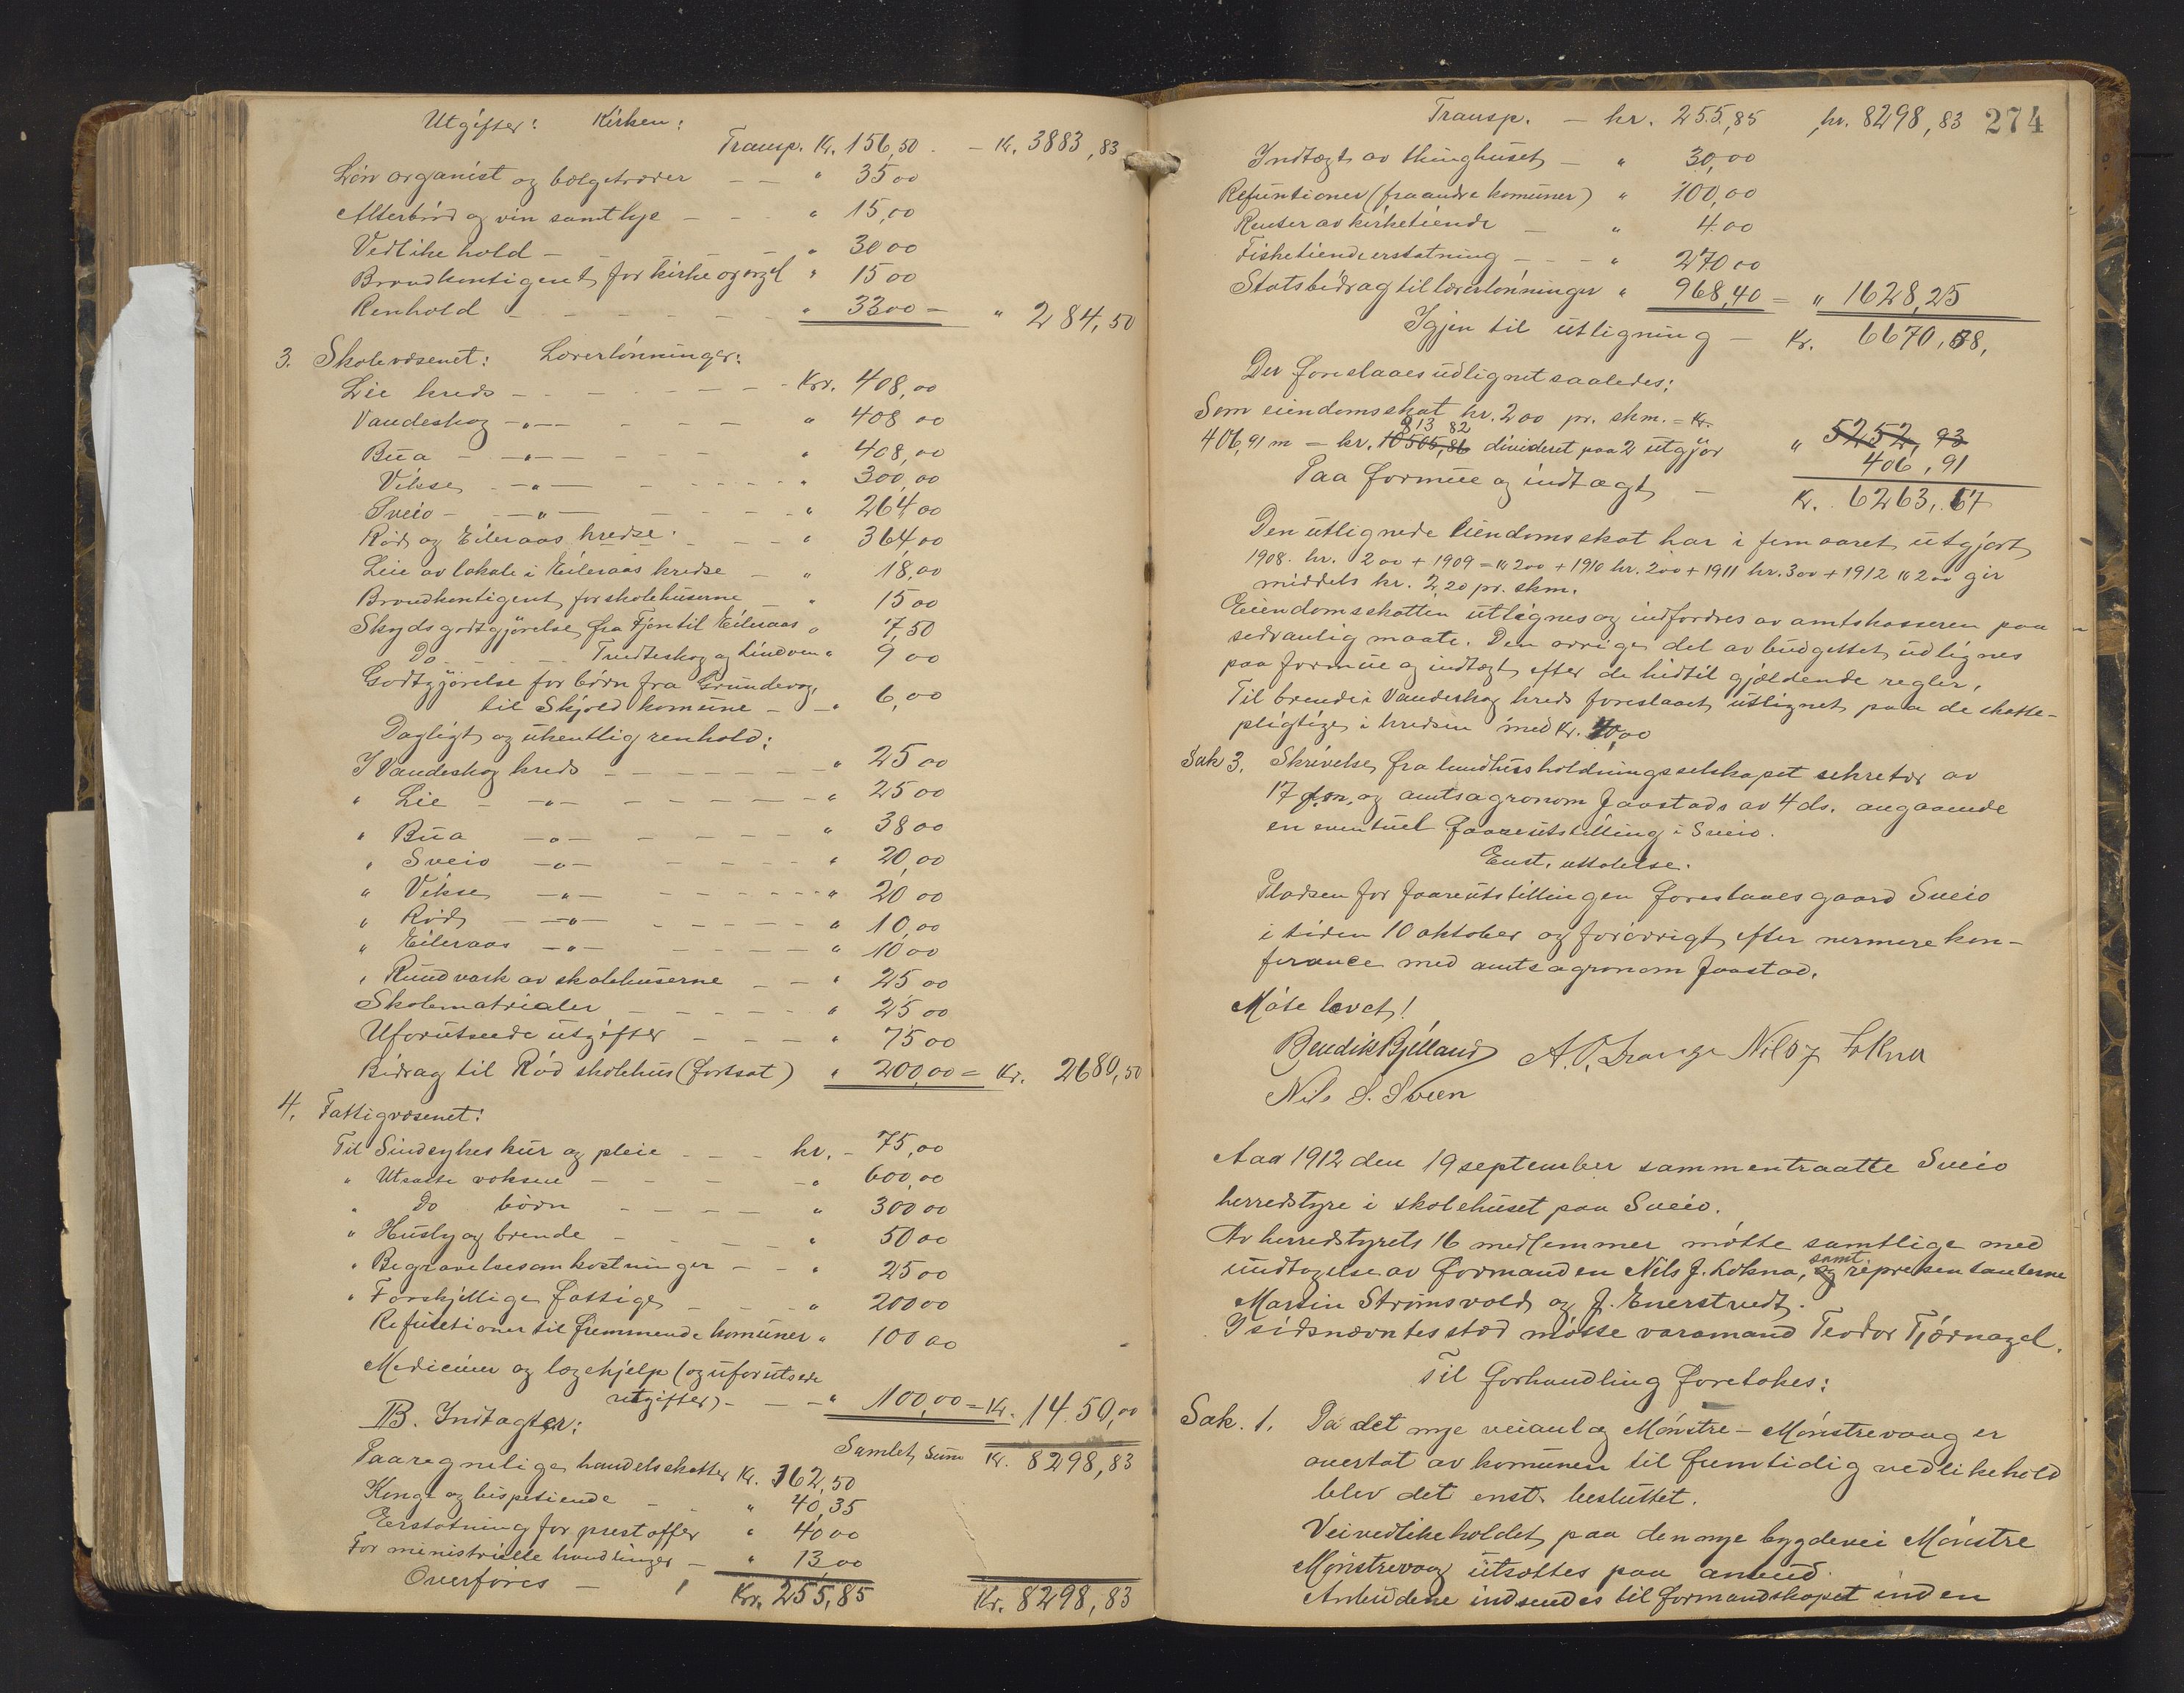 Utgifter: Kirken:
Transp. Kr. 156,50 - Kr. 3883,83
Løn organist og bælgetræder - - " 35 00
Alterbrød og vin samt lys - - " 15,00
Vedlikehold - - - " 30 00
Brandkontigent for kirke og orgel " 15 00
Renhold - - - - - " 33 00 = " 284,50
3. Skolevæsenet: Lærerlønninger:
Lie kreds - - - - - Kr. 408,00
Vandeskog -"- - - - " 408 00
Bua -"- - - - " 408,00
Vikse -"- - - - " 300,00
Sveio -"- - - - " 264 00
Rød og Eileraas kredse - - - " 364,00
Leie av lokale i Eileraas kredse - " 18,00
Brandkontigent for skolehuserne - " 15 00
Skydsgodtgjørelse fra Fjon til Eileraas " 7,50
Do - - - Tvedteskog og Lindøen " 9 00
Godtgjørelse for børn fra Grundevog,
til Skjold komune - - " 6,00
Dagligt og ukentlig renhold:
I Vandeskog kreds - - - - - " 25 00
" Lie -"- - - - - - " 25 00
" Bua -"- - - - - " 38 00
" Sveio -"- - - - - " 20,00
" Vikse -"- - - - - " 20 00
" Rød -"- - - - - " 10,00
" Eileraas -"- - - - - " 10 00
" Rundvask av skolehuserne - - " 25,00
Skolematrialer - - - - - " 25 00
Uforutseede utgifter - - - - " 75 00
Bidrag til Rød skolehus (fortsat) " 200,00 = Kr. 2680,50
4. Fattigvæsenet:
Til Sindsykes kur og pleie - - - kr. - 75,00
" Utsatte voksne - - - - " 600,00
" Do børn - - - - " 300 00
" Husly og brende - - - " 50 00
" Begravelsesomkostninger - - " 25 00
" Forskjellige fattige - - - " 200 00
Refusetioner til fremmende komuner " 100 00
Mediciner og lægehjelp (og uforutsede
utgifter) - - - " 100,00 = Kr. 14.50,00
B. Indtagter: Samlet sum Kr. 8298,83
Paaregnelige handelsskatter Kr. 162,50
Konge og bispetiende - - " 40,35
Eerstatning for prestoffer " 40 00
For ministrielle handlinger - " 13,00
Overføres - Kr. 255,85 Kr. 8298,83
Transp. - kr. 255,85 kr. 8298,83 274
Indtægt av thinghuset - " 30,00
Refuntioner (fra andre komuner) " 100,00
Renter av kirketiende - " 4.00
Fisketiendeerstatning - - - " 270 00
Statsbidrag til lærerlønninger " 968,40 = " 1628,25
Igjen til utligning - Kr. 6670,58,
Der foreslaaes udlignet saaledes:
Som eiendomsskat kr. 2 00 pr. skm. = Kr.
813 82
406,91 m = kr. 10505,86 divideret paa 2 utgjør " 5252,93
406,91
Paa formue og indtægt - Kr. 6263,67
Den utlignede Eiendomsskat har i femaaret utgjort
1908. kr. 2 00 + 1909 = " 2 00 + 1910 kr. 2 00 + 1911 kr. 3 00 + 1912 " 2 00 gir
middels kr. 2,20 pr. skm.
Eiendomsskatten utlignes og indfordres av amtskasseren paa
sedvanlig maate. Den øvrige del av budgettet udlignes
paa formue og indtægt efter de hidtil gjældende regler.
Til brende i Vandeskog kreds foreslaaet utlignet paa de skatte-
pligtige i kredsen med Kr. 40,00
Sak 3. Skrivelse fra landhusholdningsselskapet sekretær av
17 f.m. og amtsagronom Jaastads av 4 ds. angaaende
en eventuel faareutstilling i Sveio.
Enst. uttalelse.
Pladsen for faareutstillingen foreslaaes gaard Sveio
i tiden 10 oktober og forøvrigt efter nermere kon-
ferance med amtsagronom Jaastad.
Møte hævet!
Bendik Bjelland A. O. Lrange Nils J. Løkna
Nils S. Sveen
Aar 1912 den 19 september sammentraatte Sveio
herredstyre i skolehuset paa Sveio.
Av herredstyrets 16 medlemmer møtte samtlige med
undtagelse av formanden Nils J. Løkna, og samt repræsentanterne
Martin Strømsvold og J. Enerstvedt.
I sidsnævntes sted møtte varamand Teodor Tjærnagel.
Til forhandling foretokes:
Sak. 1. Da det nye veianlæg Mønstre - Mønstrevaag er
overtat av komunen til fremtidig vedlikehold
blev det enst. besluttet.
Veivedlikeholdet paa den nye bygdevei Mønstre
Mønstrevaag utsættes paa anbud.
Anbudene indsendes til formandskapet inden